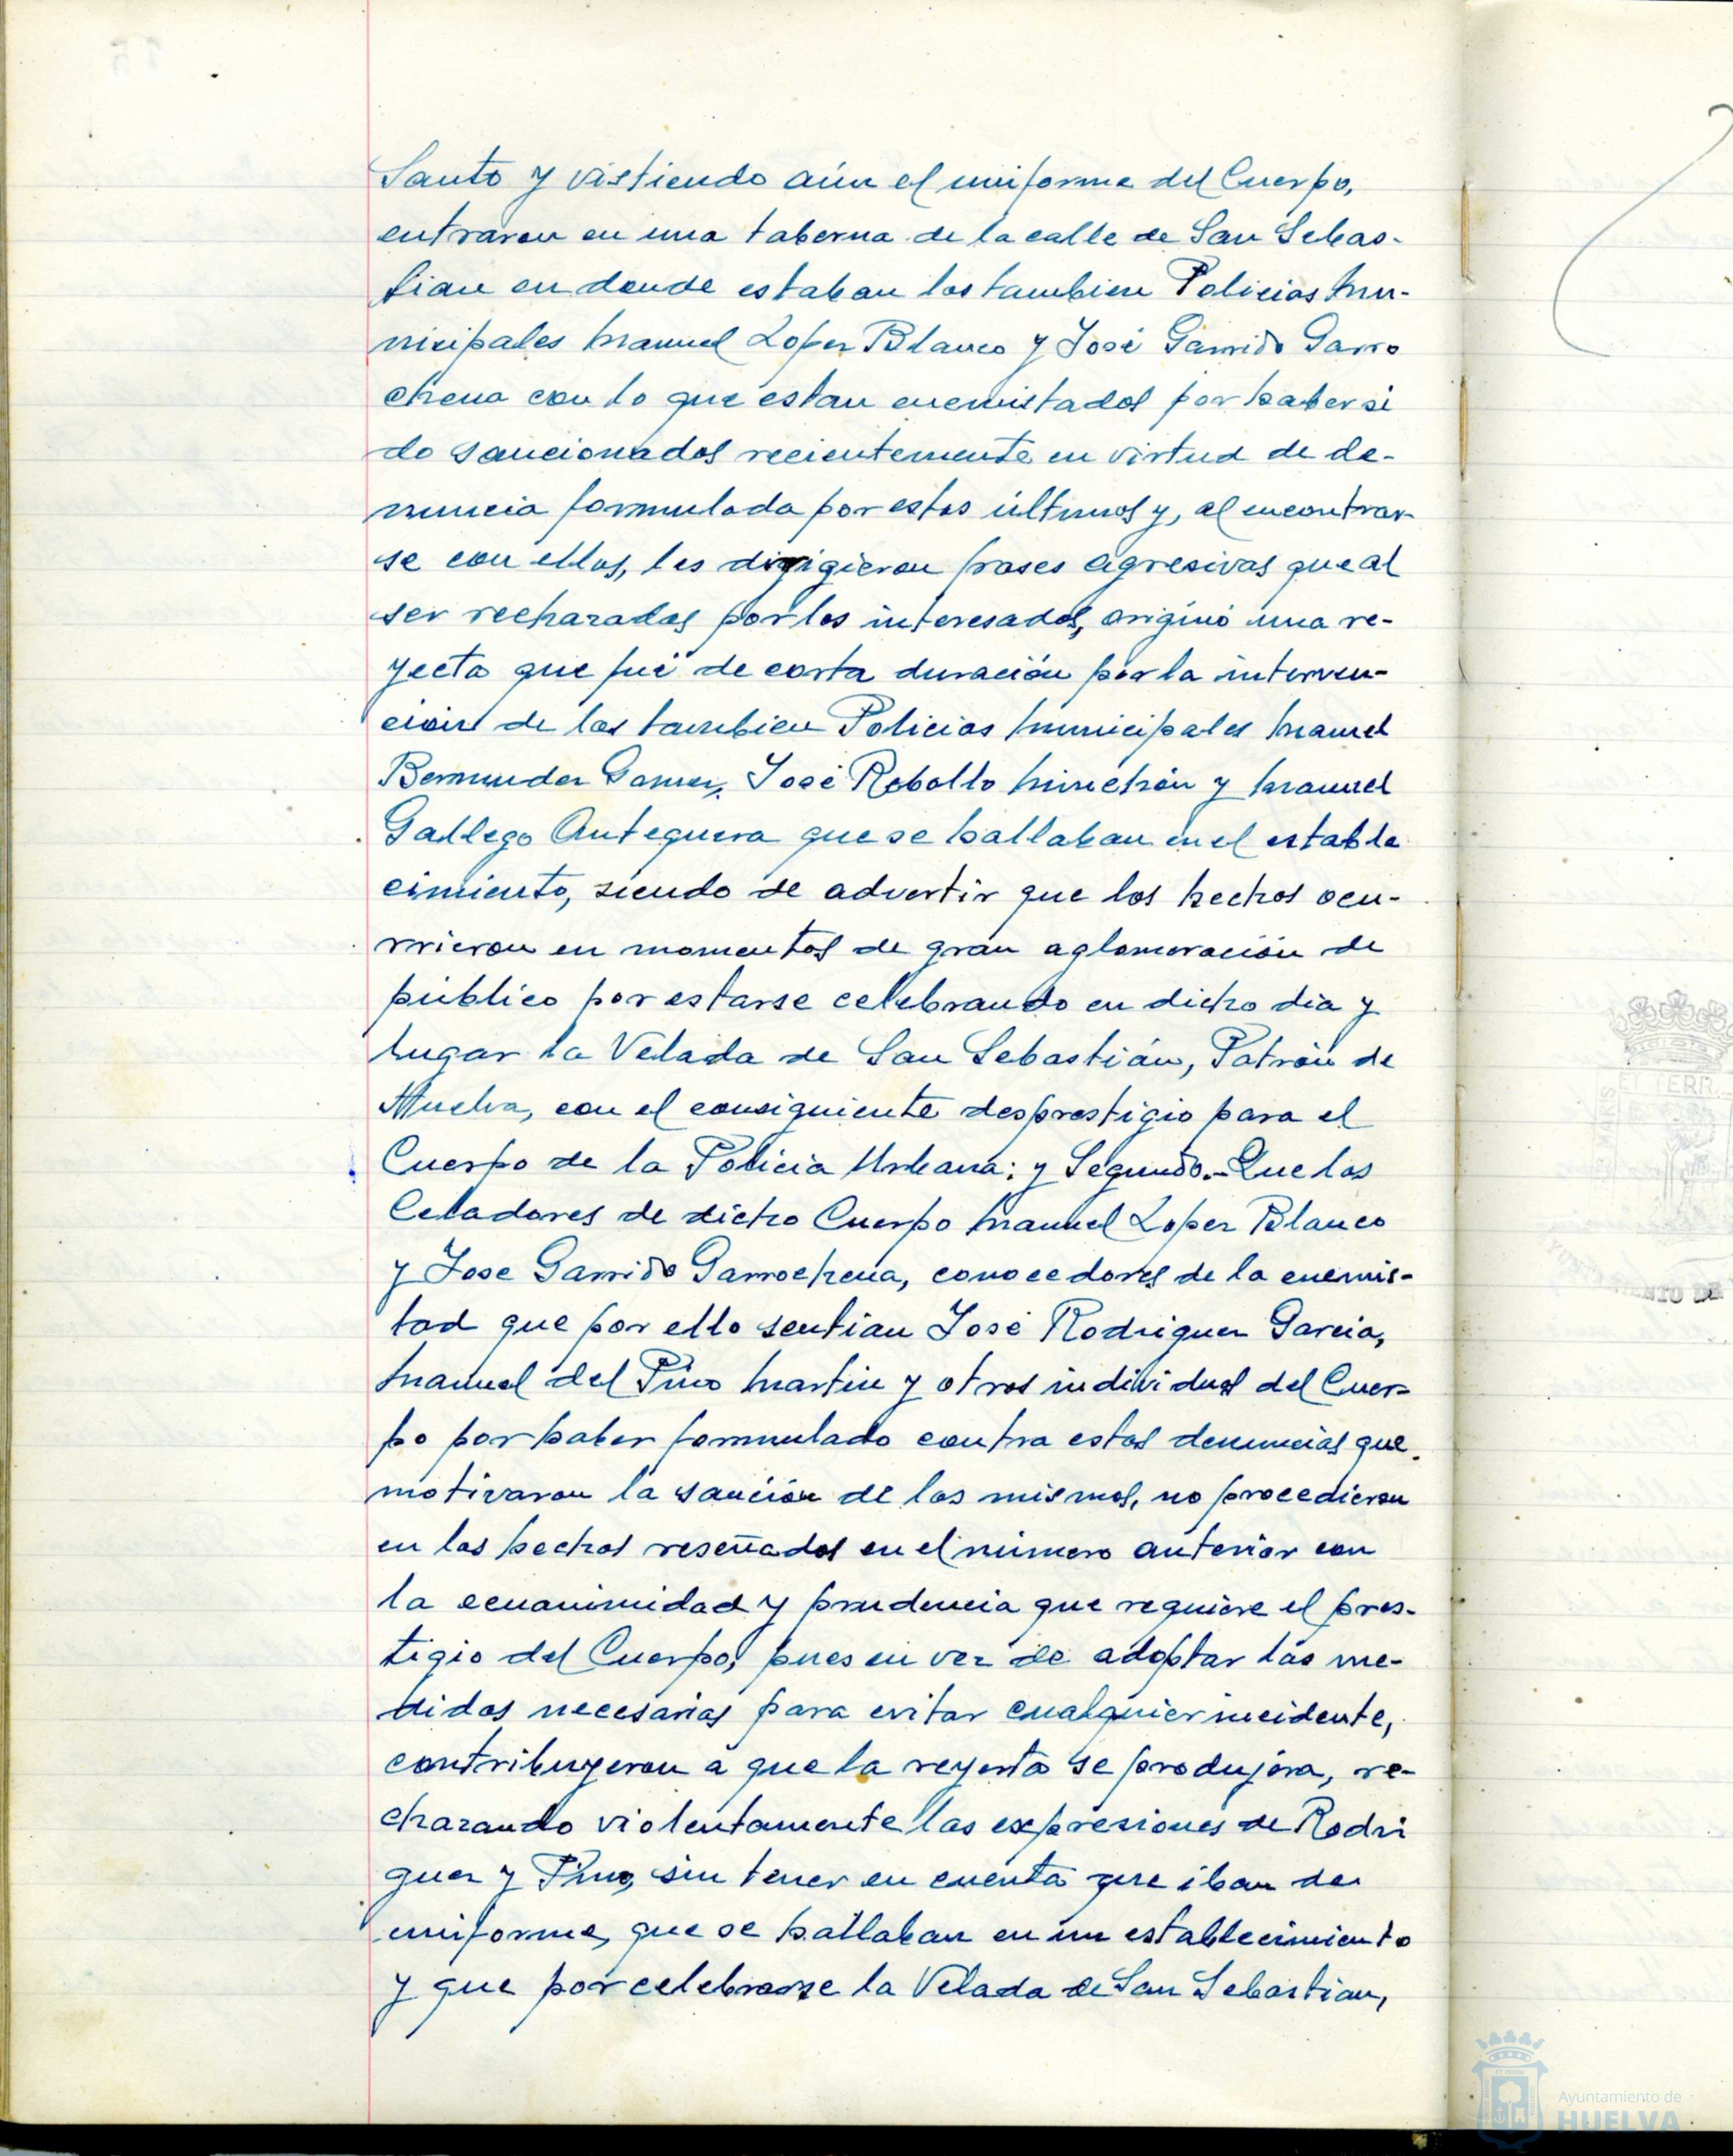 Santo y vistiendo aún el uniforme del Cuerpo,
entraron en una taberna de la calle de San Sebas-
tian en donde estaban los tambien Policias Mu-
nicipales Manuel Lopez Blanco y José Garrido Garro
chena con lo que estan enemistados por haber si
do sancionados recientemente en virtud de de-
nuncia formulada por estos últimos y, al encontrar-
se con ellos, les dirigieron frases agresivas que al
ser rechazadas por los interesados, originó una re-
yecta que fué de corta duración por la interven-
ción de los tambien Policias Municipales Manuel
Bermudez Gomez, José Rebollo Minchón y Manuel
Gallego Antequera que se hallaban en el estable
cimiento, siendo de advertir que los hechos ocu-
rrieron en momentos de gran aglomeración de
público por estarse celebrando en dicho dia y
lugar la Velada de San Sebastián, Patrón de
Huelva, con el consiguiente desprestigio para el
Cuerpo de la Policia Urbana: y Segundo.- Que los
Celadores de dicho Cuerpo Manuel Lopez Blanco
y Jose Garrido Garrochena, conocedores de la enemis-
tad que por ello sentian José Rodriguez Garcia,
Manuel del Pino Martin y otros individuos del Cuer-
po por haber formulado contra estos denuncias que
motivaron la sanción de los mismos, no procedieron
en los hechos reseñados en el número anterior con
la ecuanimidad y prudencia que requiere el pres-
tigio del Cuerpo, pues en vez de adoptar las me-
didas necesarias para evitar cualquier incidente,
contribuyeron a que la reyerta se produjera, re-
chazando violentamente las expresiones de Rodri
guez y Pino, sin tener en cuenta que iban de
uniforme, que se hallaban en un establecimiento
y que por celebrarse la Velada de San Sebastian,
Ayuntamiento de
HUELVA